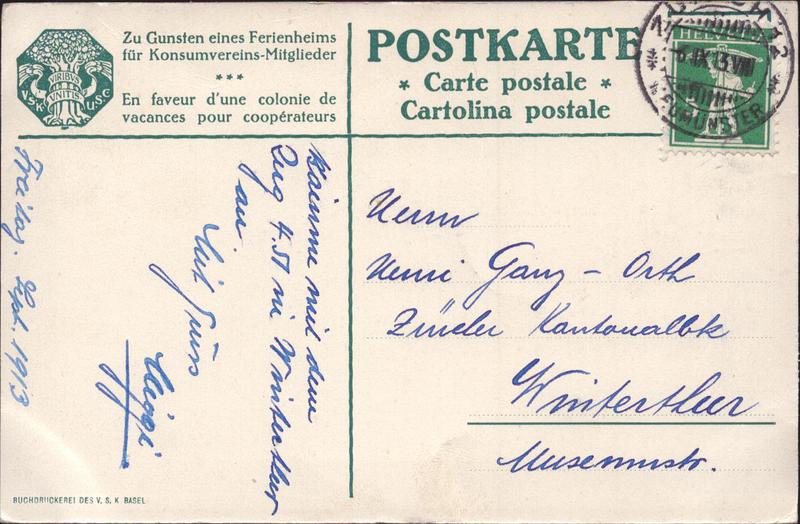 Zu Gunsten eines Ferienheims
für Konsumvereins-Mitglieder
***
En faveur d'une colonie de
vacances pour coopérateurs
VIRIBVS
VNITIS
V.S.K.
U.S.C.
POSTKARTE
* Carte postale *
Cartolina postale
HELVETIA
6.IX.13.VIII
Herrn
Henri Ganz-Orth
Zürcher Kantonalbk
Winterthur
Museumstr.
Komme mit dem
Zug 4.51 in Winterthur
an.
Mit Gruss
Freitag. Sept. 1913
BUCHDRUCKEREI DES V. S. K. BASEL